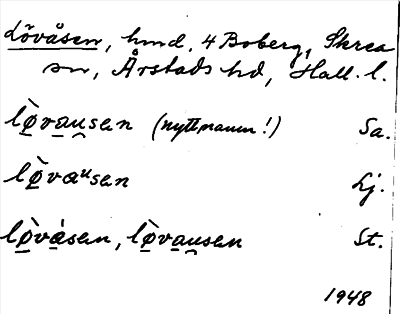 Lövåsen, hmd. 4 Boberg, Skrea
sn, Årstads hd, Hall. l.
lø̀vau̯sen (nyttnamn!) Sa.
lø̀vaᵘsen Lj.
lø̀vásen, lø̀vau̯sen St.
1948